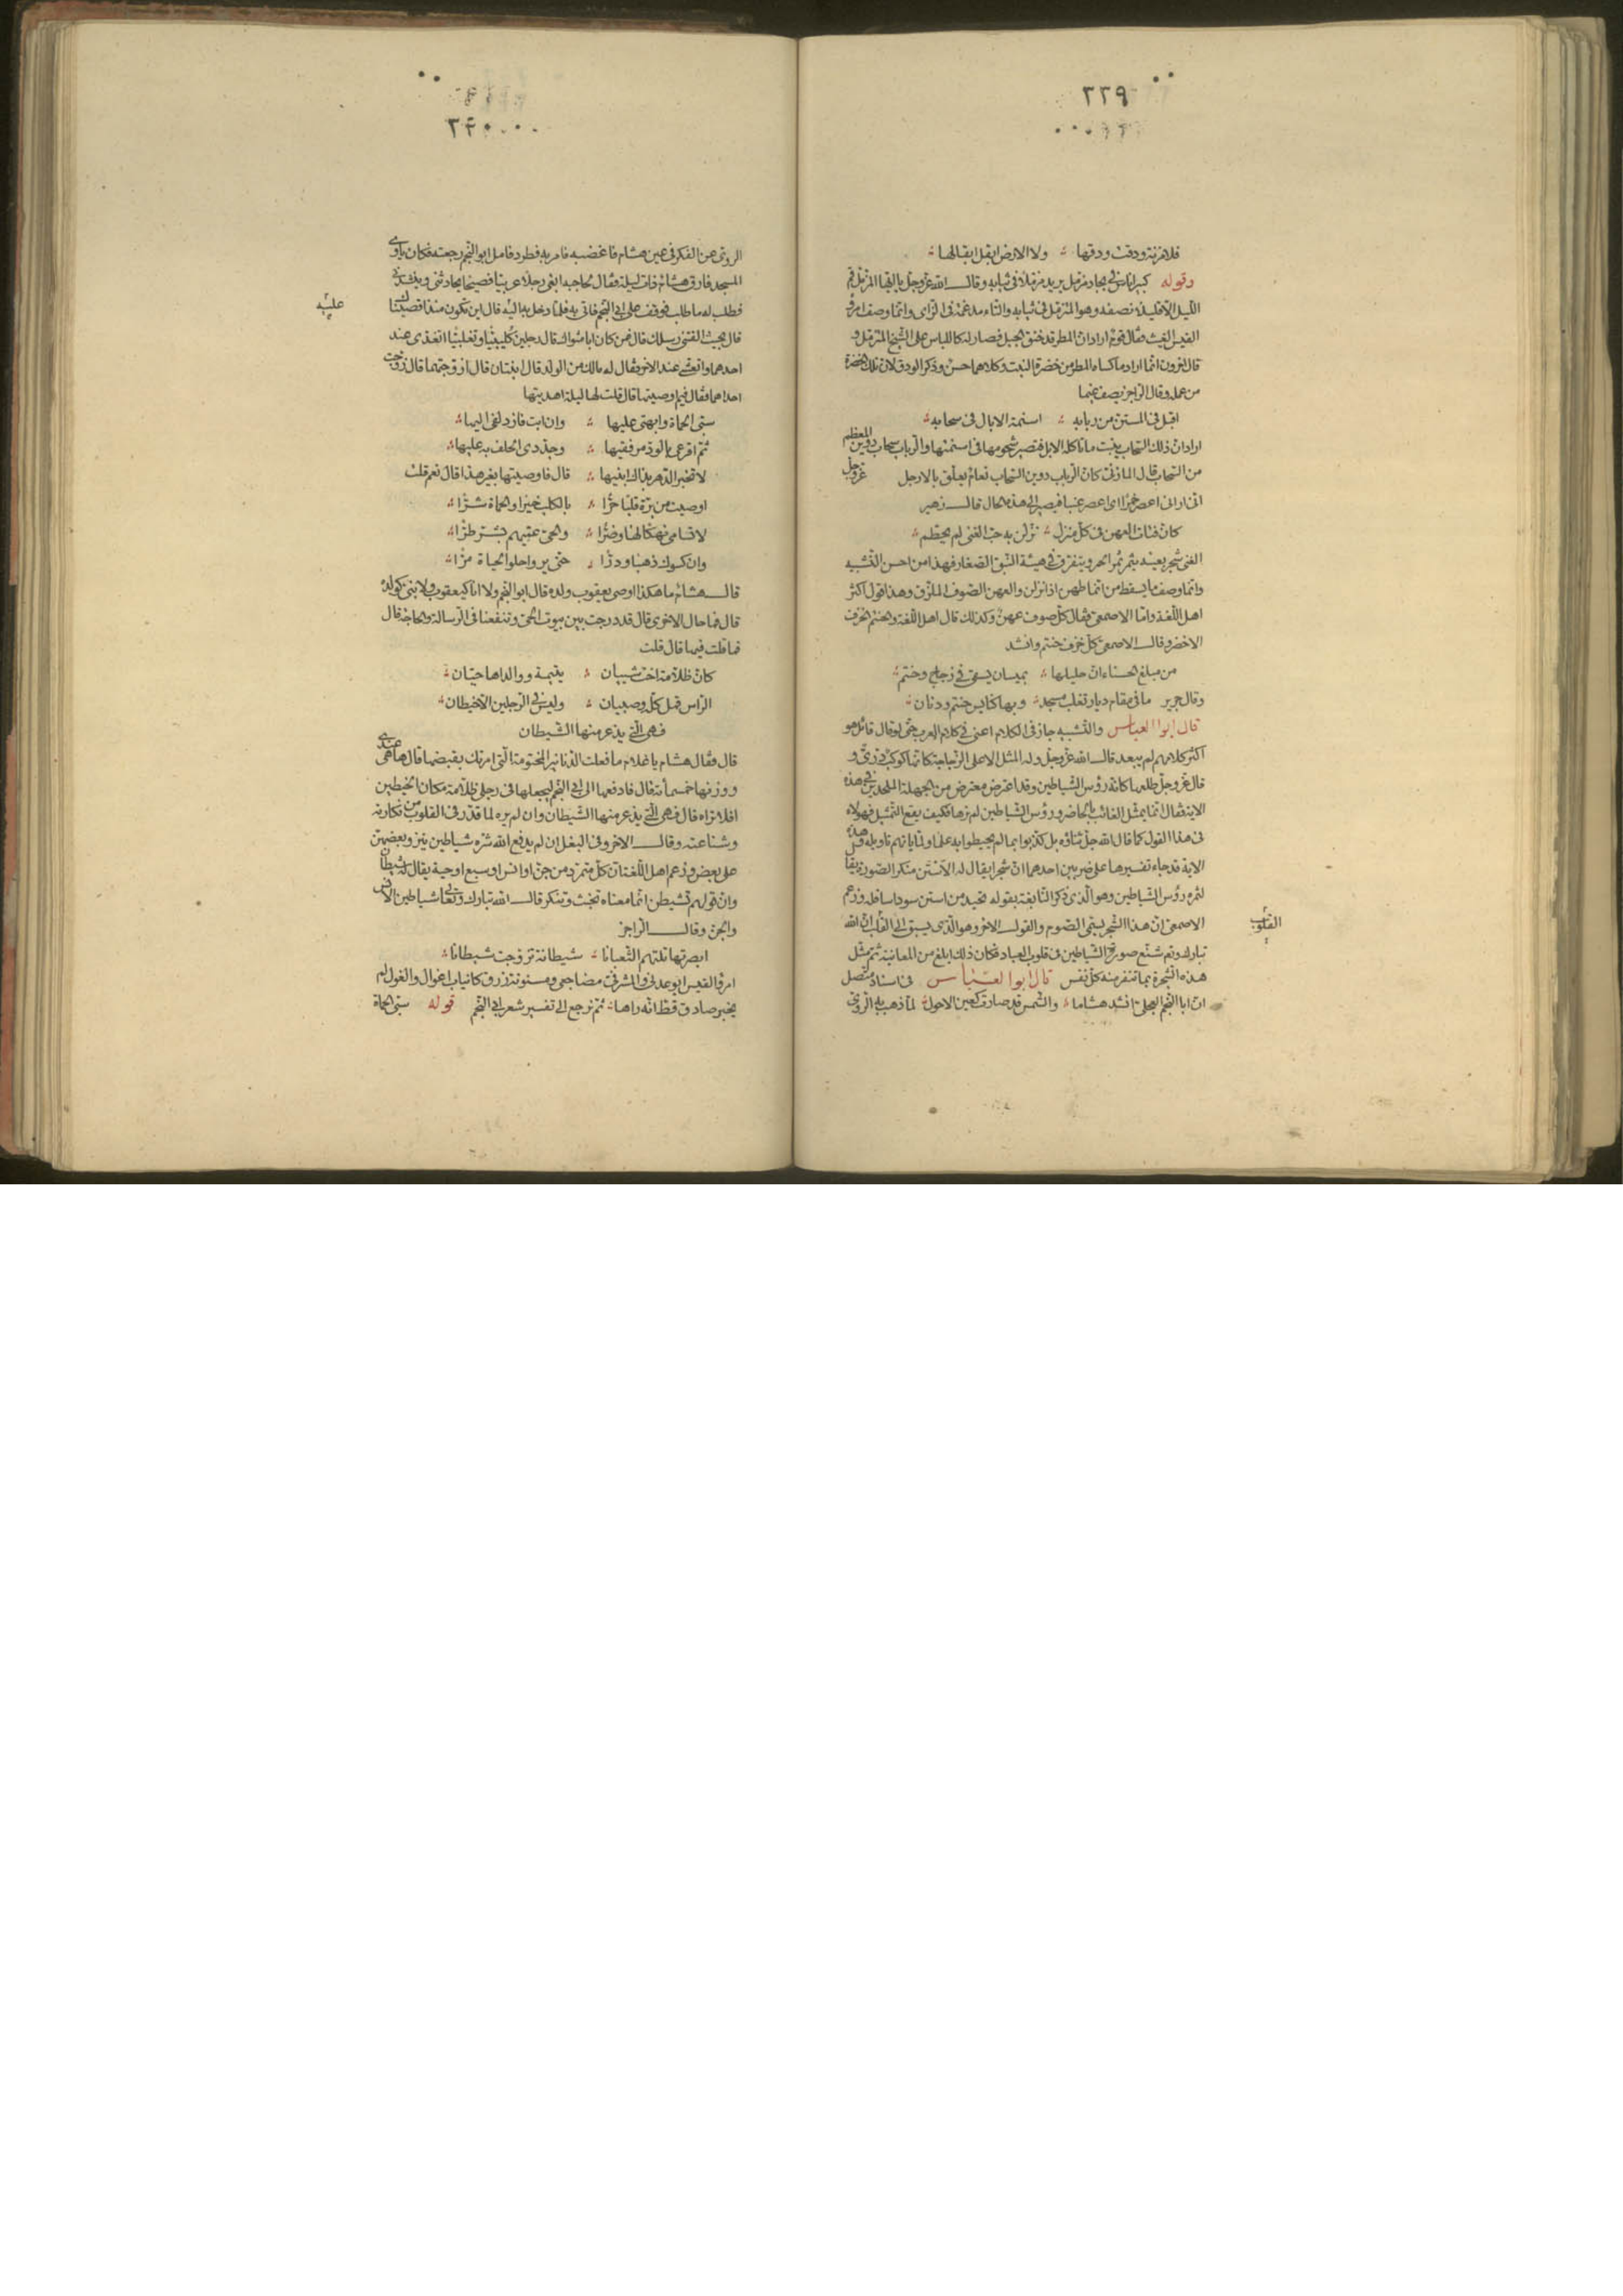 ٢٣٩
فلا مزنة ودقت ودقها ولا الارض ابقل ابقالها
وقوله كبير اناس في بجاد مزمل يريد مزملا في ثيابه وقال الله عز وجل يا ايها المزمل قم
الليل الا قليلا نصفه وهو المتزمل في ثيابه والتاء مدغمة في الزاى وانما وصف امرؤ
القيس الغيث فقال قوم اراد ان المطر قد خنق الجبل فصار له كاللباس على الشيخ المتزمل و
قال اخرون انما اراد ما كساه المطر من خضرة النبت وكلاهما حسن وذكر الودق لان تلك الخضرة
من عمله وقال الراجز يصف غيما
اقبل في المستن من ربابه اسنمة الابال في سحابه
اراد ان ذلك السحاب ينبت ما تاكله الابل فتصير شحومها في اسنمتها والرباب سحاب دوين المعظم
من السحاب قال المازني كان الرباب دوين السحاب نعام يعلق بالارجل عز وجل
انى ارانى اعصر خمرا اى اعصر عنبا فيصير الى هذه الحال قال زهير
كان فتات العهن في كل منزل نزلن به حب الفنى لم يحطم
الفنى شجر بعينه يثمر ثمرا احمر ويتفرق في هيئة النبق الصغار فهذا من احسن التشبيه
وانما وصف ما يسقط من انماطهن اذا نزلن والعهن الصوف الملون وهذا قول اكثر
اهل اللغة واما الاصمعى فقال كل صوف عهن وكذلك قال اهل اللغة والحنتم الخزف
الاخضر وقال الاصمعى كل خزف حنتم وانشد
من مبلغ الحسناء ان حليلها بميسان يسقى في زجاج وحنتم
وقال جرير ما في مقام ديار تغلب مسجد وبها كنايس حنتم ودنان
قال ابو العباس والتشبيه جاز في الكلام اعنى في كلام العرب حتى لو قال قائل هو
اكثر كلامهم لم يبعد قال الله عز وجل وله المثل الاعلى الزجاجة كانها كوكب درى و
قال عز وجل طلعها كانه رؤس الشياطين وقد اعترض معترض من الجهلة الملحدين في هذه
الاية فقال انما يمثل الغائب بالحاضر ورؤس الشياطين لم نرها فكيف يقع التمثيل فهولاء
في هذا القول كما قال الله جل ثناؤه بل كذبوا بما لم يحيطوا بعلمه ولما ياتهم تاويله وهذه
الاية قد جاء تفسيرها على ضربين احدهما ان شجرا يقال له الاستن منكر الصورة يقال
لثمره رؤس الشياطين وهو الذى ذكر النابغة بقوله تحيد من استن سود اسافله وزعم
الاصمعى ان هذا الشجر يسمى الصوم والقول الاخر وهو الذى يسبق الى القلب ان الله
القلوب
تبارك وتع شنع صورة الشياطين في قلوب العباد فكان ذلك ابلغ من المعاينة ثم مثل
هذه الشجرة بما تنفر منه كل نفس قال ابو العباس في اسناد متصل
ان ابا النجم العجلى انشد هشاما والشمس قد صارت كعين الاحول لما ذهب به الروى
٢٤٠
الروى عن الفكر في عين هشام فاغضبه فامر به فطرد فامل ابو النجم رجعته فكان ياوى
المسجد فارق هشام ذات ليلة فقال لحاجبه ابغنى رجلا عربيا فصيحا يحادثنى وينشدنى
فطلب له ما طلب فوقف على ابي النجم فاتى به فلما دخل به اليه قال اين تكون منذ اقصيناك
عليه
قال بحيث الفتنى رسلك قال فمن كان ابا مثواك قال رجلين كلبيا وتغلبيا اتغدى عند
احدهما واتعشى عند الاخر فقال له مالك من الولد قال ابنتان قال ازوجتهما قال زوجت
احداهما فقال فيم اوصيتها قال قلت لها ليلة اهديتها
سبى الحماة وابهتى عليها وان ابت فازدلفى اليها
ثم اقرعى بالود مرفقيها وجددى الحلف به عليها
لا تخبر الدهر بذاك ابنيها قال فاوصيتها بغير هذا قال نعم قلت
اوصيت من برة قلبا حرا بالكلب خيرا والحماة شرا
لا تسامى نهكا لها وضرا والحى عميهم بشر طرا
وان كسوك ذهبا ودرا حتى يروا حلو الحياة مرا
قال هشام ما هكذا اوصى يعقوب ولده قال ابو النجم ولا انا كيعقوب ولا بنى كولده
قال فما حال الاخرى قال قد درجت بين بيوت الحى وتنفعنا في الرسالة والحاجة قال
فما قلت فيها قال قلت
كان ظلامة اخت شيبان يتيمة ووالداها حيان
الراس قمل كله وصيبان وليس في الرجلين الا خيطان
فهى التى يذعر منها الشيطان
قال فقال هشام يا غلام ما فعلت الدنانير المختومة التى امرتك بقبضها قال ها هى عندى
ووزنها خمسمائة قال فادفعها الى ابي النجم ليجعلها في رجلى ظلامة مكان الخيطين
افلا تراه قال فهى التى يذعر منها الشيطان وان لم يره لما قدر في القلوب من نكارته
وشناعته وقال الاخر وفي البغل ان لم يدفع الله شره شياطين ينزو بعضهن
على بعض وزعم اهل اللغة ان كل متمرد من جن او انس او سبع او حية يقال له شيطان
وان قولهم تشيطن انما معناه تخبث وتنكر قال الله تبارك وتعالى شياطين الانس
والجن وقال الراجز
ابصرتها تلتهم الثعبانا شيطانة تزوجت شيطانا
امرؤ القيس ايوعدنى والمشرفى مضاجعى ومسنونة زرق كانياب اغوال والغول لم
يخبر صادق قط انه راها ثم نرجع الى تفسير شعر ابي النجم قوله سبى الحماة